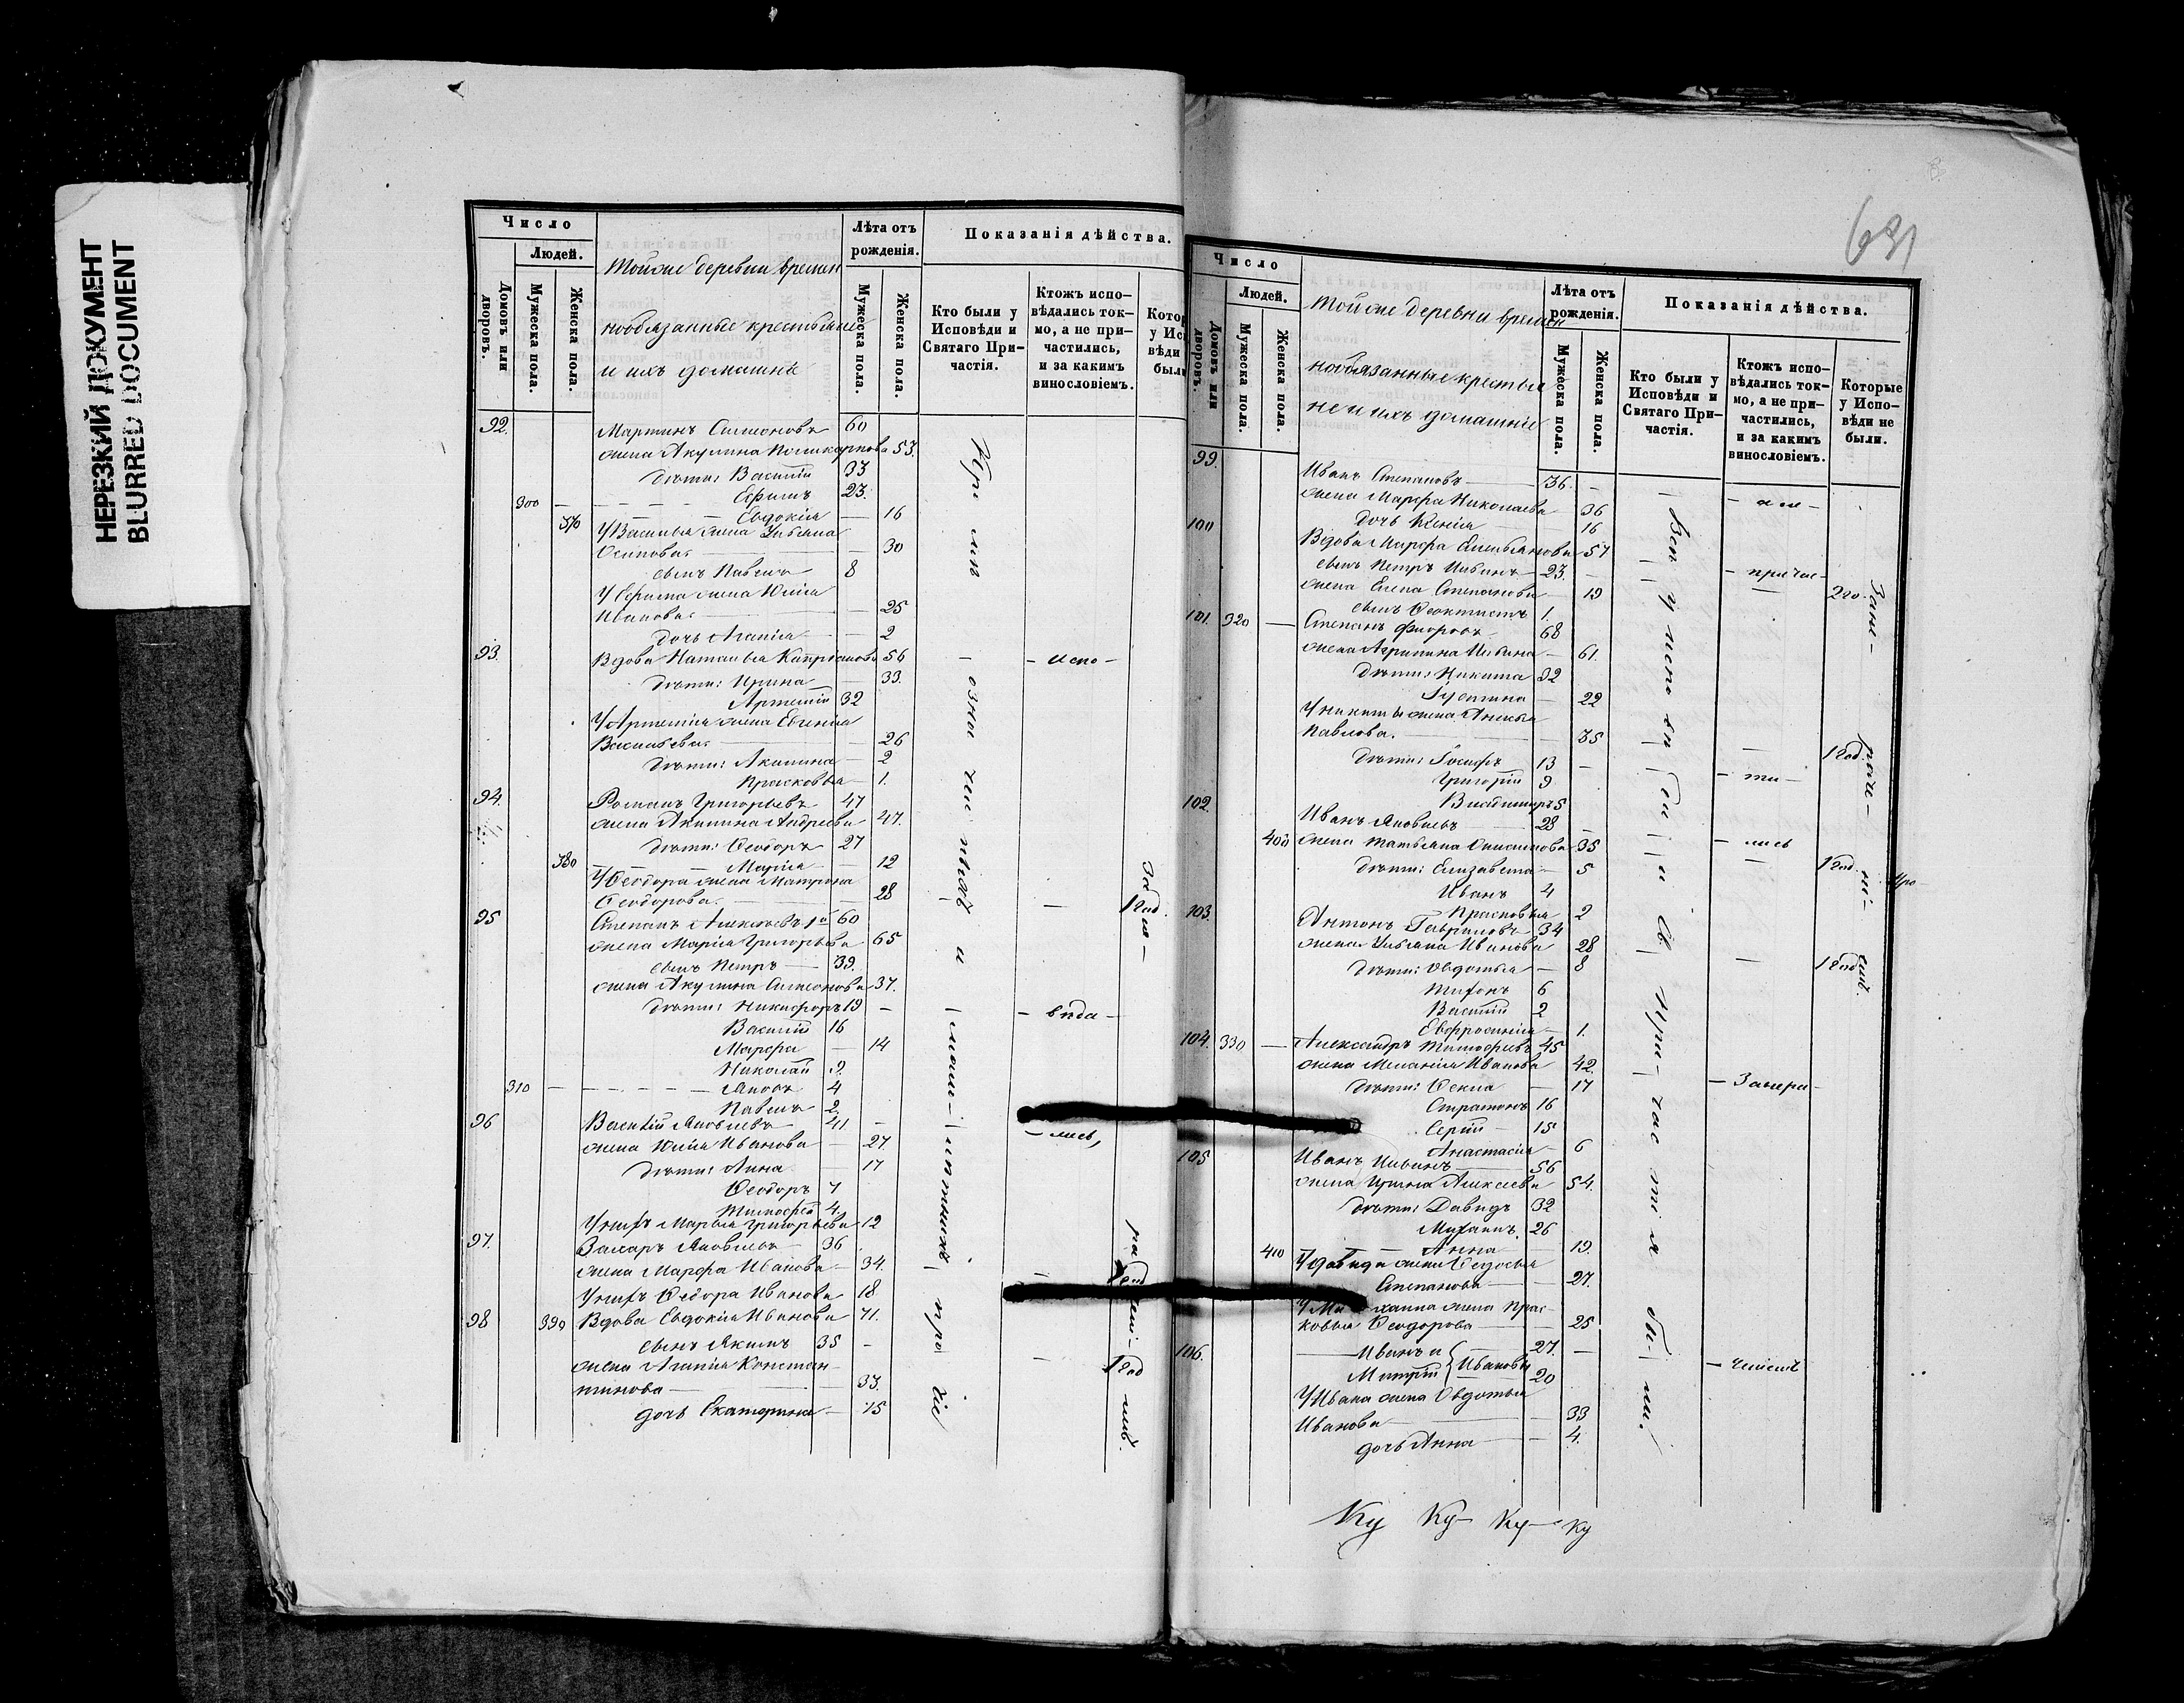 НЕРЕЗКИЙ ДОКУМЕНТ
BLURRED DOCUMENT
Число
Людей.
Домовъ или дворовъ.
Мужеска пола.
Женска пола.
Тойже деревни времен
нообязанные крестьяне
и ихъ домашніе
Лѣта отъ рожденія.
Мужеска пола.
Женска пола.
Показанія дѣйства.
Кто были у Исповѣди и Святаго Причастія.
Ктожъ исповѣдались токмо, а не причастились, и за какимъ винословіемъ.
92. Мартинъ Симеоновъ 60
жена Акулина Поликарпова 53.
дѣти: Василій 33
300 Ефимъ 23.
370 Евдокія 16
У Василья жена Ульяна
Осипова 30
сынъ Павелъ 8
У Ефима жена Юлія
Иванова 25
дочь Агапія 2
93. Вдова Наталья Капріанова 56
дѣти: Ирина 33.
Артемій 32
У Артемія жена Евгенія
Васильева 26
дѣти: Акилина 2
Прасковья 1.
94. Романъ Григорьевъ 47
жена Акилина Андреева 47.
дѣти: Ѳеодоръ 27
380 Марія 12
У Ѳеодора жена Матрона
Ѳеодорова 28
95 Степанъ Алексѣевъ 1й 60
жена Марія Григорьева 65
сынъ Петръ 39.
жена Акулина Симеонова 37.
дѣти: Никифоръ 19
Василій 16
Марфа 14
Николай 9.
310 Яковъ 4
Павелъ 2.
96 Василій Яковлевъ 41
жена Юлія Иванова 27.
дѣти: Анна 17
Ѳеодоръ 7
Тимофей 4.
У нихъ Марья Григорьева 12
97. Захаръ Яковлевъ 36
жена Марфа Иванова 34.
У нихъ Ѳедора Иванова 18
98 390 Вдова Евдокія Иванова 71.
сынъ Якимъ 35
жена Агапія Констан-
тинова 33.
дочь Екатерина 15
- испо-
- вѣда -
- лись,
1 год.
1 год
681
Число
Людей.
Домовъ или дворовъ.
Мужеска пола.
Женска пола.
Тойже деревни времен
нообязанные крестья
не и ихъ домашніе
Лѣта отъ рожденія.
Мужеска пола.
Женска пола.
Показанія дѣйства.
Кто были у Исповѣди и Святаго Причастія.
Ктожъ исповѣдались токмо, а не причастились, и за какимъ винословіемъ.
Которые у Исповѣди не были.
99. Иванъ Степановъ 36.
жена Марфа Николаева 36
дочь Ксенія 16
100 Вдова Марфа Емельянова 57
сынъ Петръ Ильинъ 23.
жена Елена Степанова 19
сынъ Ѳеоктистъ 1.
101. 320 Степанъ Фроровъ 68
жена Агрипина Ильина 61.
дѣти: Никита 32
Іустина 22
У Никиты жена Анисья
Павлова. 35
дѣти: Іосифъ 13
Григорій 9
Владимиръ 5
102. Иванъ Яковлевъ 28
400 жена Татьяна Онисимова 35
дѣти: Елизавета 5
Иванъ 4
Прасковья 2
103. Антонъ Гавриловъ 34
жена Ульяна Иванова 28
дѣти: Овдотья 8
Тихонъ 6
Василій 2
Евфросинія 1.
104. 330 Александръ Тимофѣевъ 45
жена Меланія Иванова 42.
дѣти: Ѳекла 17
Стратонъ 16
Сергій 15
Анастасія 6
105 Иванъ Ильинъ 56
жена Ирина Алексеева 54.
дѣти: Давидъ 32
Михаилъ 26
410 Анна 19.
У Давида жена Ѳедосья
Степанова 27.
У Михаила жена Прас-
ковья Ѳеодорова 25
106. Иванъ и 27.
Митрій Ивановы 20
У Ивана жена Овдотья
Иванова 33
дочь Анна 4.
- причас-
- ти -
- лись
2 го.
1 год.
1 год.
1 год
Ку Ку Ку Ку